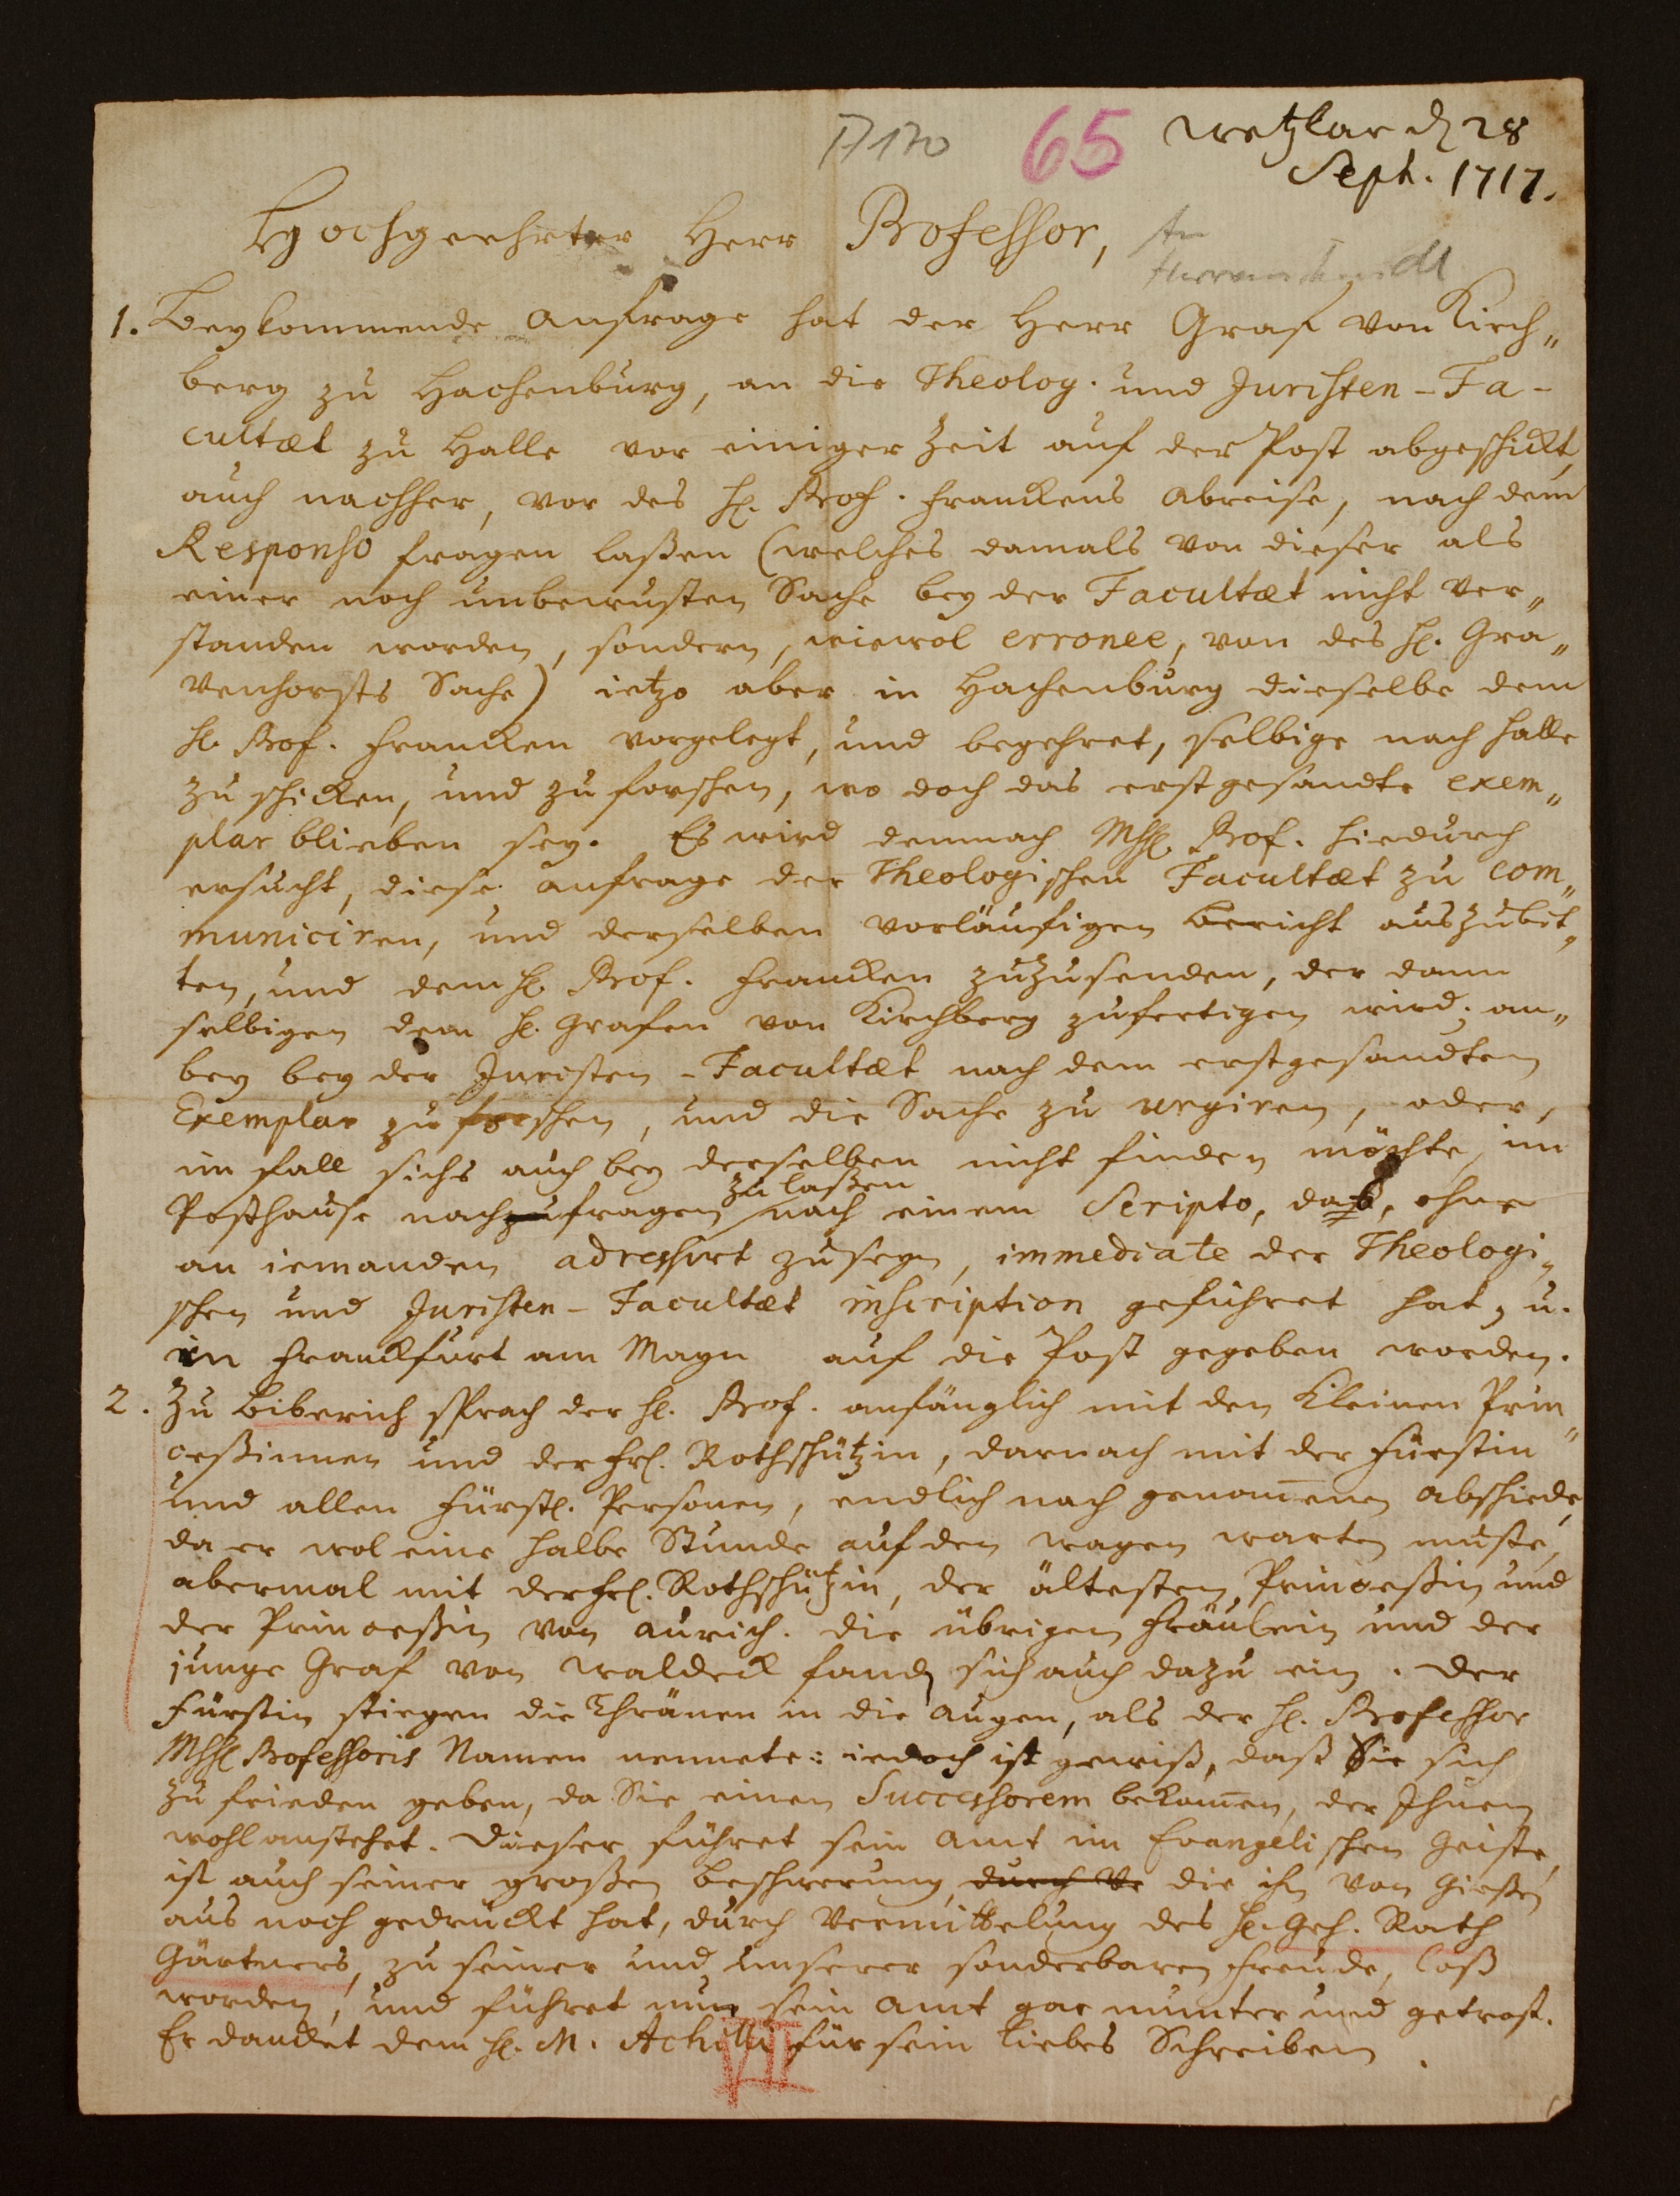 A 170
65
Wetzlar d 28
Sept. 1717.
Hochgeehrter Herr Professor,
An
Herrnschmidt
1. Beykommende Anfrage hat der Herr Graf von Kirch„
berg zu Hachenburg, an die Theolog. und Juristen-Fa-
cultæt zu Halle vor einiger Zeit auf der Post abgeschickt,
auch nachher, vor des H. Prof. Franckens Abreise, nach dem
Responso fragen laßen (welches damals von dieser als
einer noch unbewusten Sache bey der Facultæt nicht ver„
standen worden, sondern, wiewol erronee, von des H. Gra„
venhorsts Sache) ietzo aber in Hachenburg dieselbe dem
H. Prof. Francken vorgelegt, und begehret, selbige nach Halle
zu schicken, und zu forschen, wo doch das erstgesandte exem„
plar blieben sey. Es wird demnach MhH. Prof. hiedurch
ersucht, diese anfrage der Theologischen Facultæt zu com„
municiren, und derselben vorläufigen Bericht auszubit„
ten, und dem H. Prof. Francken zuzusenden, der dann
selbigen dem H. Grafen von Kirchberg zufertigen wird; an„
bey bey der Juristen-Facultæt nach dem erstgesandten
Exemplar zu forschen, und die Sache zu urgiren, oder,
im fall sichs auch bey derselben nicht finden möchte, im
zu laßen
Posthause nachzufragen nach einem Scripto, das, ohne
an iemanden adressirt zu seyn, immediate der Theologi„
schen und Juristen-Facultæt inscription geführet hat, u.
in Franckfurt am Mayn auf die Post gegeben worden.
2. Zu Biberich sprach der H. Prof. anfänglich mit den kleinen Prin„
ceßinnen und der Frl. Rothschützin, darnach mit der Fürstin
und allen Fürstl. Personen, endlich nach genom̄enen Abschiede,
da er wol eine halbe Stunde auf den Wagen warten muste,
abermal mit der Frl. Rothschützin, der ältesten Princeßin und
der Princeßin von Aurich. die übrigen Fräulein und der
junge Graf von Waldeck fand sich auch dazu ein. Der
Fürstin stiegen die Thränen in die Augen, als der H. Professor
MhH Professoris Namen nennete: iedoch ist gewiß, daß Sie sich
zu frieden geben, da Sie einen Successorem bekom̄en, der Ihnen
wohl anstehet. Dieser führet sein Amt im Evangelischen Geiste,
ist auch seiner großen beschwerung, durch Ve die ihn von Gießen
aus noch gedruckt hat, durch Vermittelung des H. Geh. Rath
Gärtners, zu seiner und unserer sonderbaren Freude, loß
worden, und führet nun sein Amt gar munter und getrost.
Er dancket dem H. M. Achilli für sein liebes Schreiben.
VII